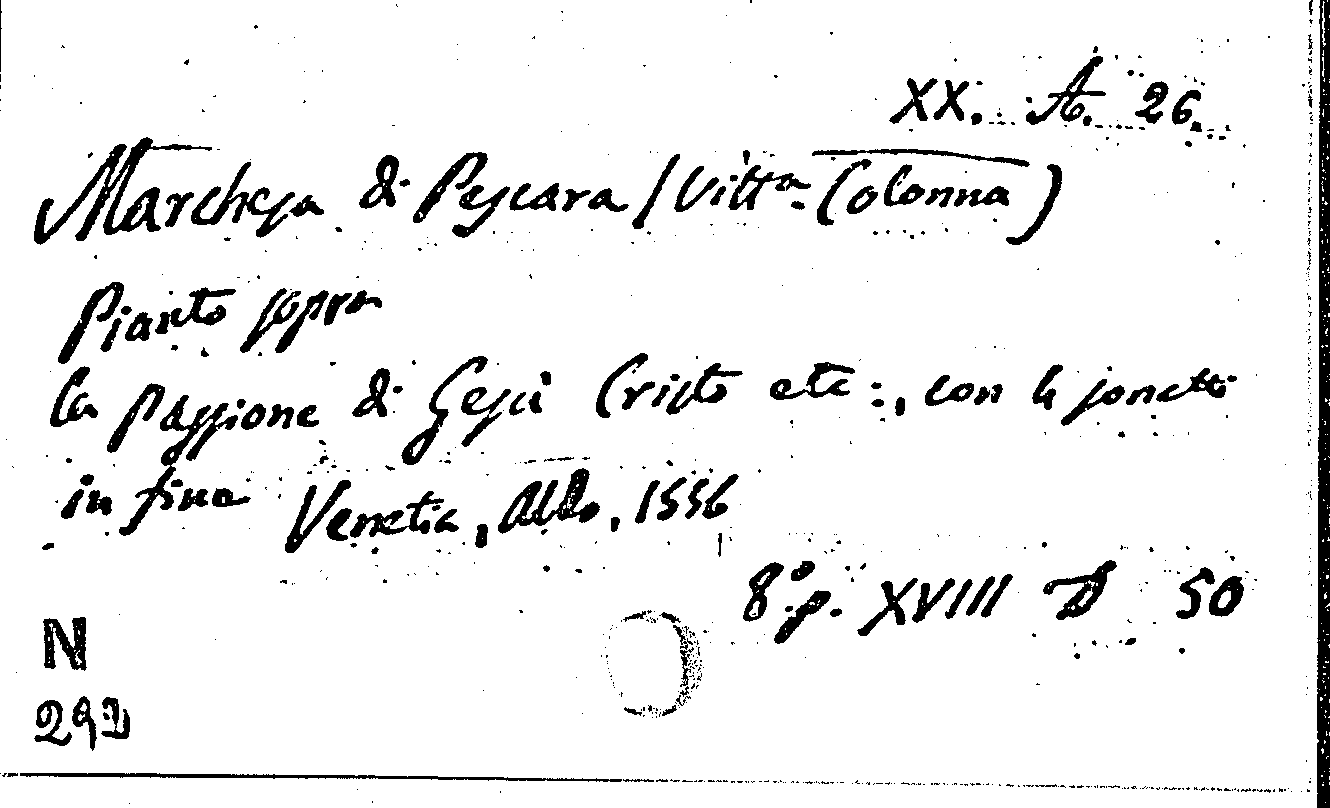 XX. A. 26.
Marchesa di Pescara (Vitt.a Colonna)
Pianto sopra
la passione di Gesù Cristo etc:, con
in fine Venetia, Aldo, 1556
8.° p. XVIII D 50
N